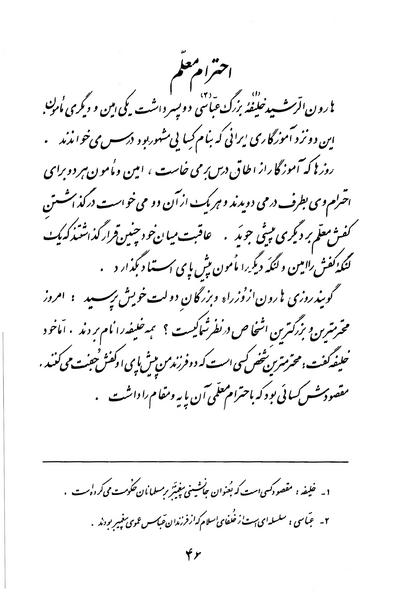 احترام معلّم
هارون الرشید خلیفهٔ (۱) بزرگ عباسی (۲) دو پسر داشت یکی امین و دیگری مأمون.
این دو نزد آموزگاری ایرانی که بنام کسایی مشهور بود درس می خواندند .
روزها که آموزگار از اطاق درس بر می خاست ، امین و مأمون هر دو برای
احترام وی بطرف در می دویدند و هر یک از آن دو می خواست در گذاشتنِ
کفش معلّم بر دیگری پیشی جوید . عاقبت میان خود چنین قرار گذاشتند که یک
لنگهٔ کفش را امین و لنگهٔ دیگر را مأمون پیش پای استاد بگذارد .
گویند روزی هارون از وُزراء و بزرگانِ دولت خویش پرسید : امروز
محترمترین و بزرگترین اشخاص در نظر شما کیست ؟ همه خلیفه را نام بردند . امّا خود
خلیفه گفت : محترمترین شخص کسی است که دو فرزند من پیش پای او کفش جُفت می کنند .
مقصودش کسائی بود که با احترام معلّمی آن پایه و مقام را داشت .
۱- خلیفه : مقصود کسی است که بعنوان جانشینی پیغمبر بر مسلمانان حکومت می کرده است .
۲- عباسی : سلسله ای است از خلفای اسلام که از فرزندان عباس عموی پیغمبر بودند .
۴۶